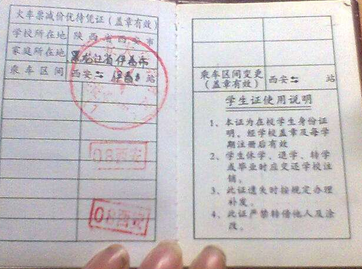 火车票减价优待凭证（盖章有效）
学校所在地 陕西省西安市
家庭所在地 黑龙江省伊春市
乘车区间 西安⇌伊春 站
08西安
08西安
乘车区间变更
（盖章有效）
西安⇌ 站
学生证使用说明
1、本证为在校学生身份证
明，经学校盖章及每学
期注册后有效
2、学生休学、退学、转学
或毕业时应交还学校注
销。
3、此证遗失时按规定办理
补发。
4、此证严禁转借他人及涂
改。